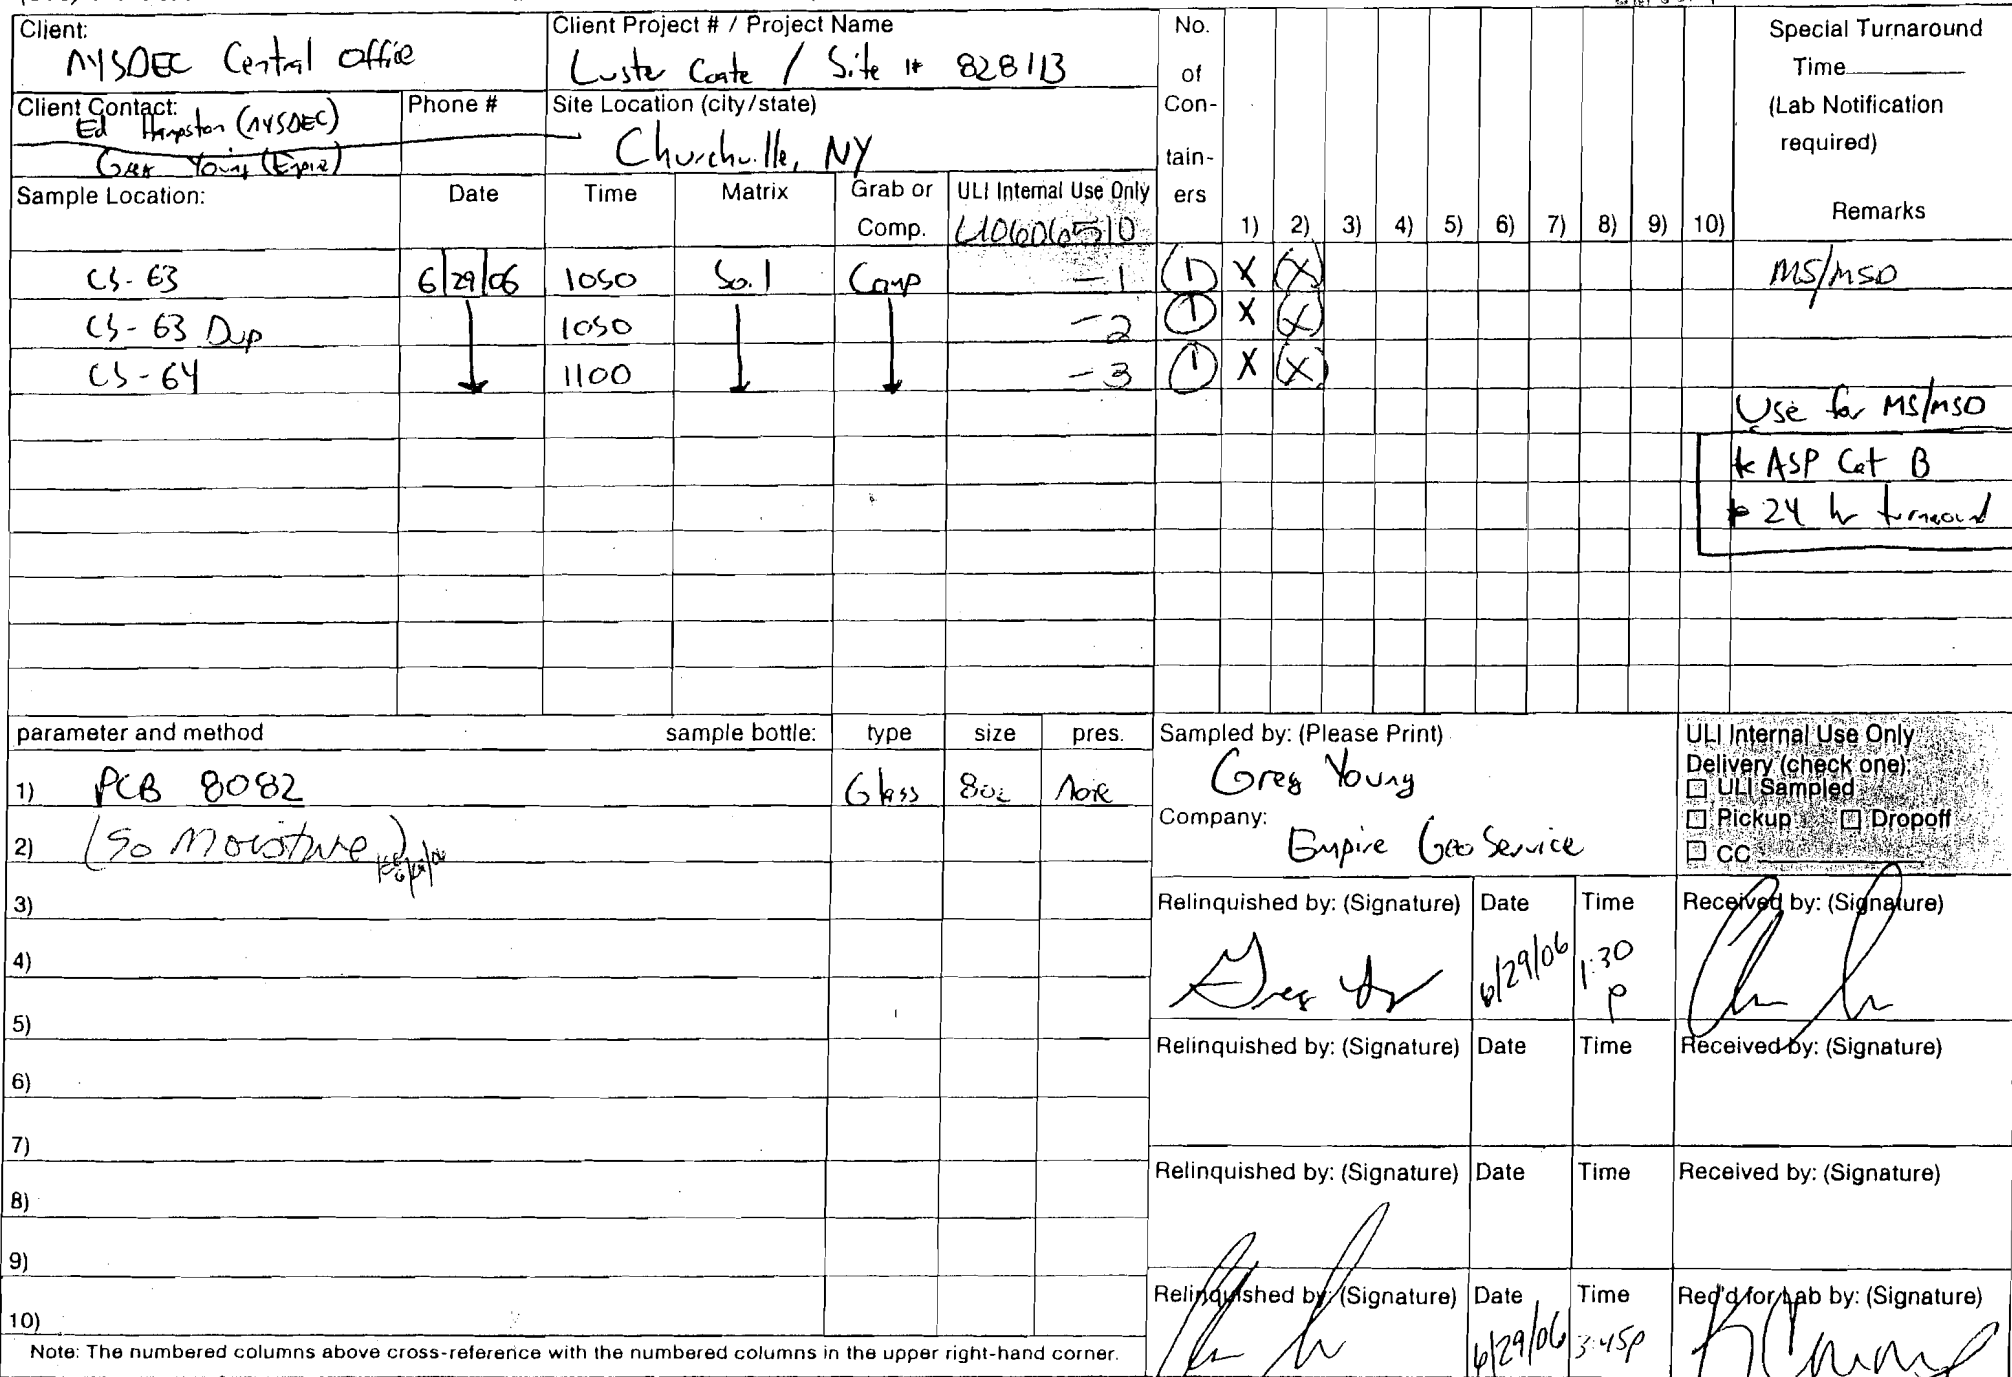 Client:
NYSDEC Central Office
Client Project # / Project Name
Luster Coate / Site # 828113
No.
of
Con-
tain-
ers
Special Turnaround
Time
(Lab Notification
required)
Remarks
Client Contact:
Ed Hampston (NYSDEC)
Greg Young (Empire)
Phone #
Site Location (city/state)
Churchville, NY
Sample Location: Date Time Matrix Grab or Comp. ULI Internal Use Only
U0606510
1) 2) 3) 4) 5) 6) 7) 8) 9) 10)
CS-63 6/29/06 1050 Soil Comp -1 1 X (X) MS/MSD
CS-63 Dup 1050 -2 1 X (X)
CS-64 1100 -3 1 X (X)
Use for MS/MSD
* ASP Cat B
* 24 hr turnaround
parameter and method sample bottle: type size pres.
1) PCB 8082 Glass 8oz None
2) (% Moisture)
3)
4)
5)
6)
7)
8)
9)
10)
Note: The numbered columns above cross-reference with the numbered columns in the upper right-hand corner.
Sampled by: (Please Print)
Greg Young
Company:
Empire Geo Service
ULI Internal Use Only
Delivery (check one):
ULI Sampled
Pickup Dropoff
CC
Relinquished by: (Signature) Date Time Received by: (Signature)
Greg 6/29/06 1:30 p
Relinquished by: (Signature) Date Time Received by: (Signature)
Relinquished by: (Signature) Date Time Received by: (Signature)
Relinquished by: (Signature) Date Time Rec'd for Lab by: (Signature)
6/29/06 3:45p